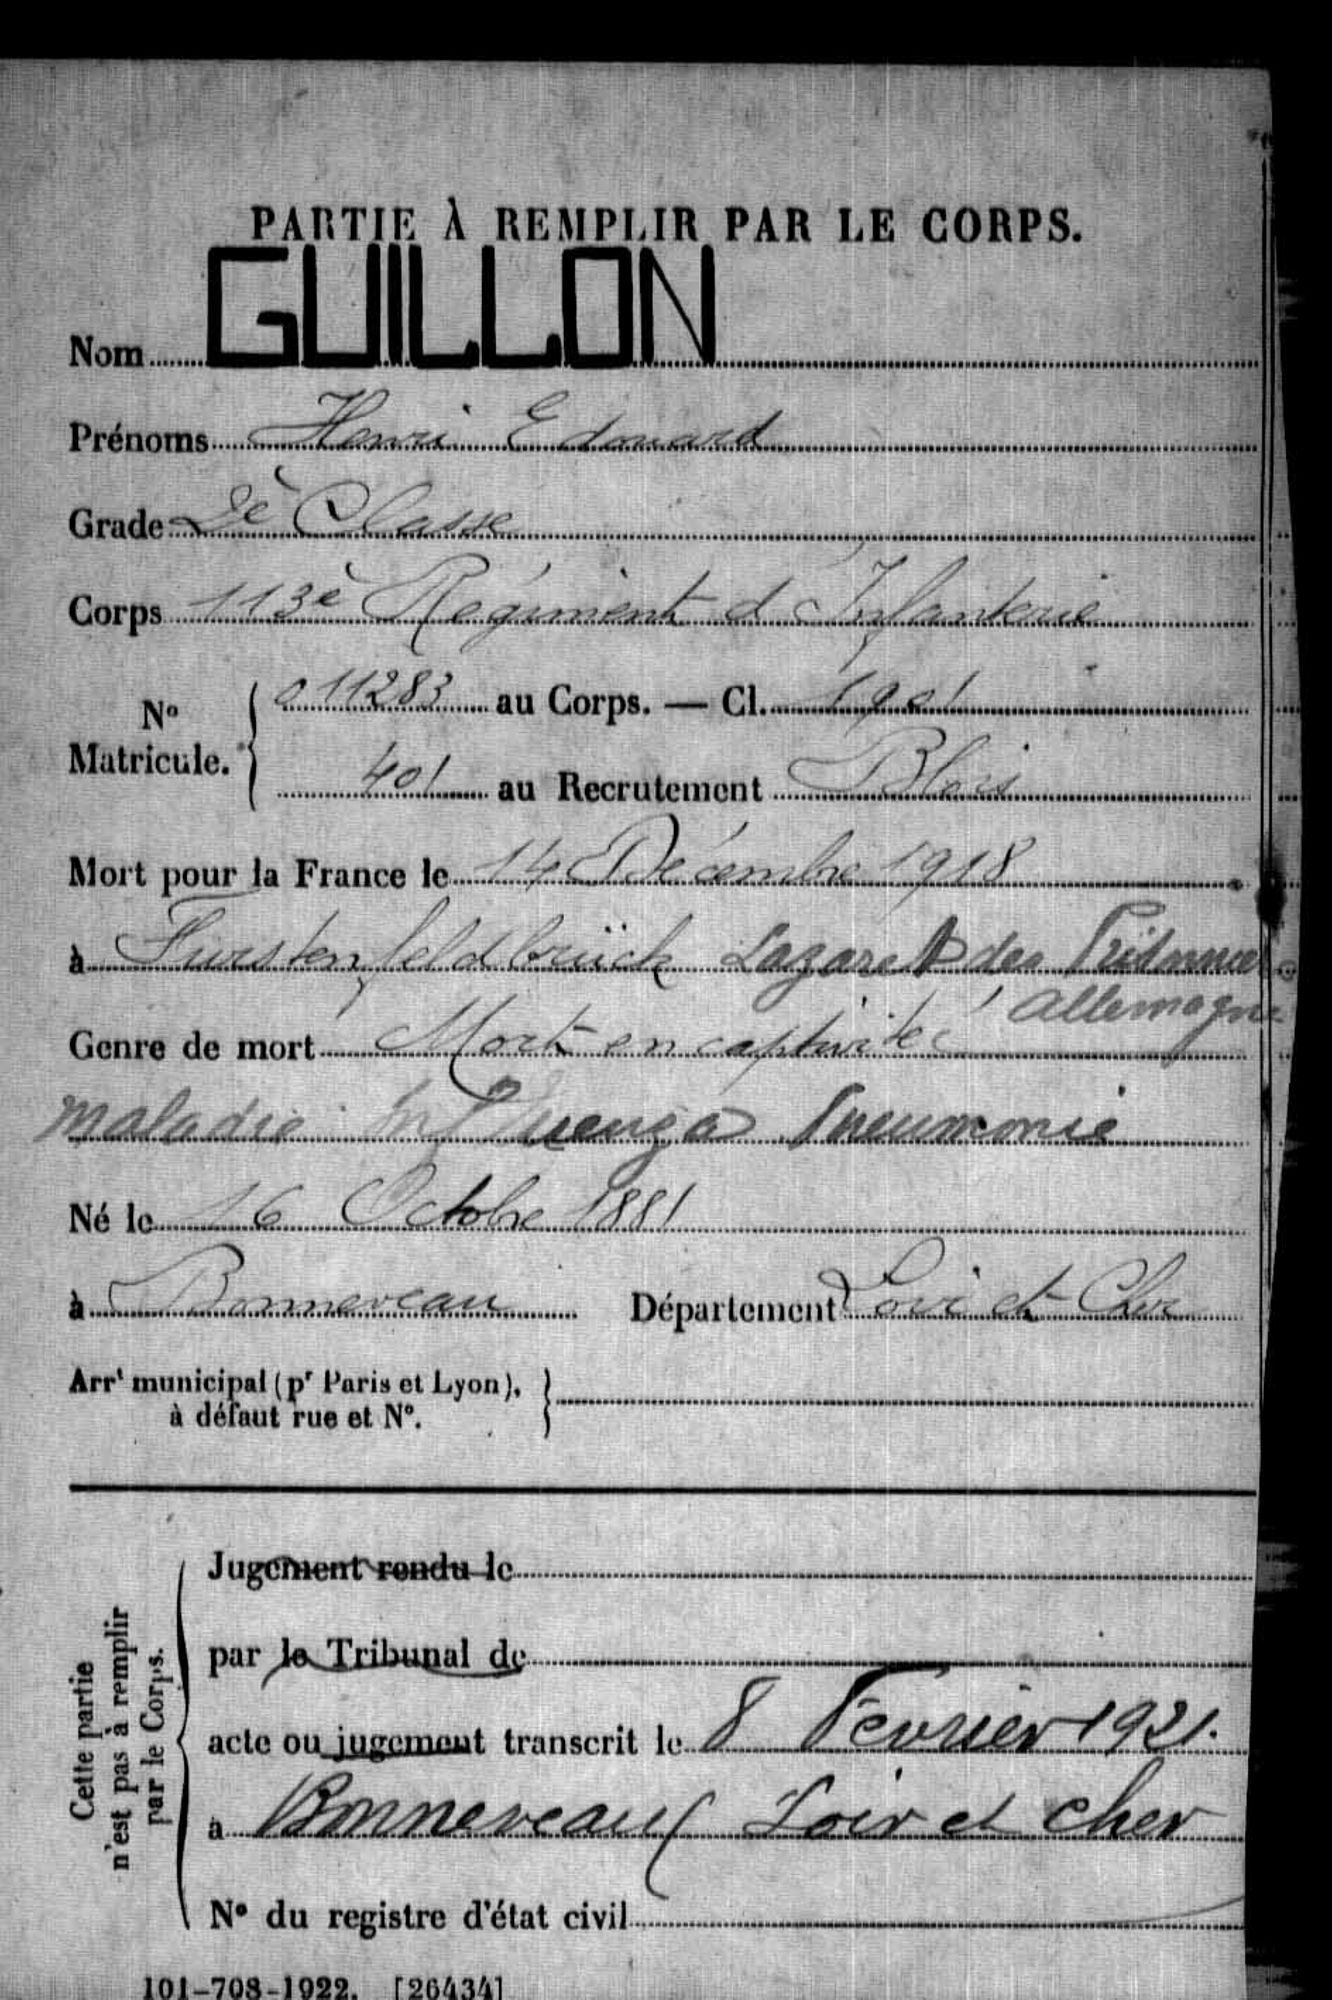 PARTIE À REMPLIR PAR LE CORPS.
Nom GUILLON
Prénoms Henri Edouard
Grade 2è Classe
Corps 113è Régiment d'Infanterie
N° Matricule. 011283 au Corps. — Cl. 1901
401 au Recrutement Blois
Mort pour la France le 14 Décembre 1918
à Furstenfeldbrück Lazaret des
Allemagne
Genre de mort Mort en captivité
maladie Influenza Pneumonie
Né le 16 Octobre 1881
à Bonneveau Département Loir et Cher
Arrt municipal (pr Paris et Lyon),
à défaut rue et N°.
Cette partie
n'est pas à remplir
par le Corps.
Jugement rendu le
par le Tribunal de
acte ou jugement transcrit le 8 Février 1921.
à Bonneveau Loir et Cher
N° du registre d'état civil
101-708-1922. [26434]